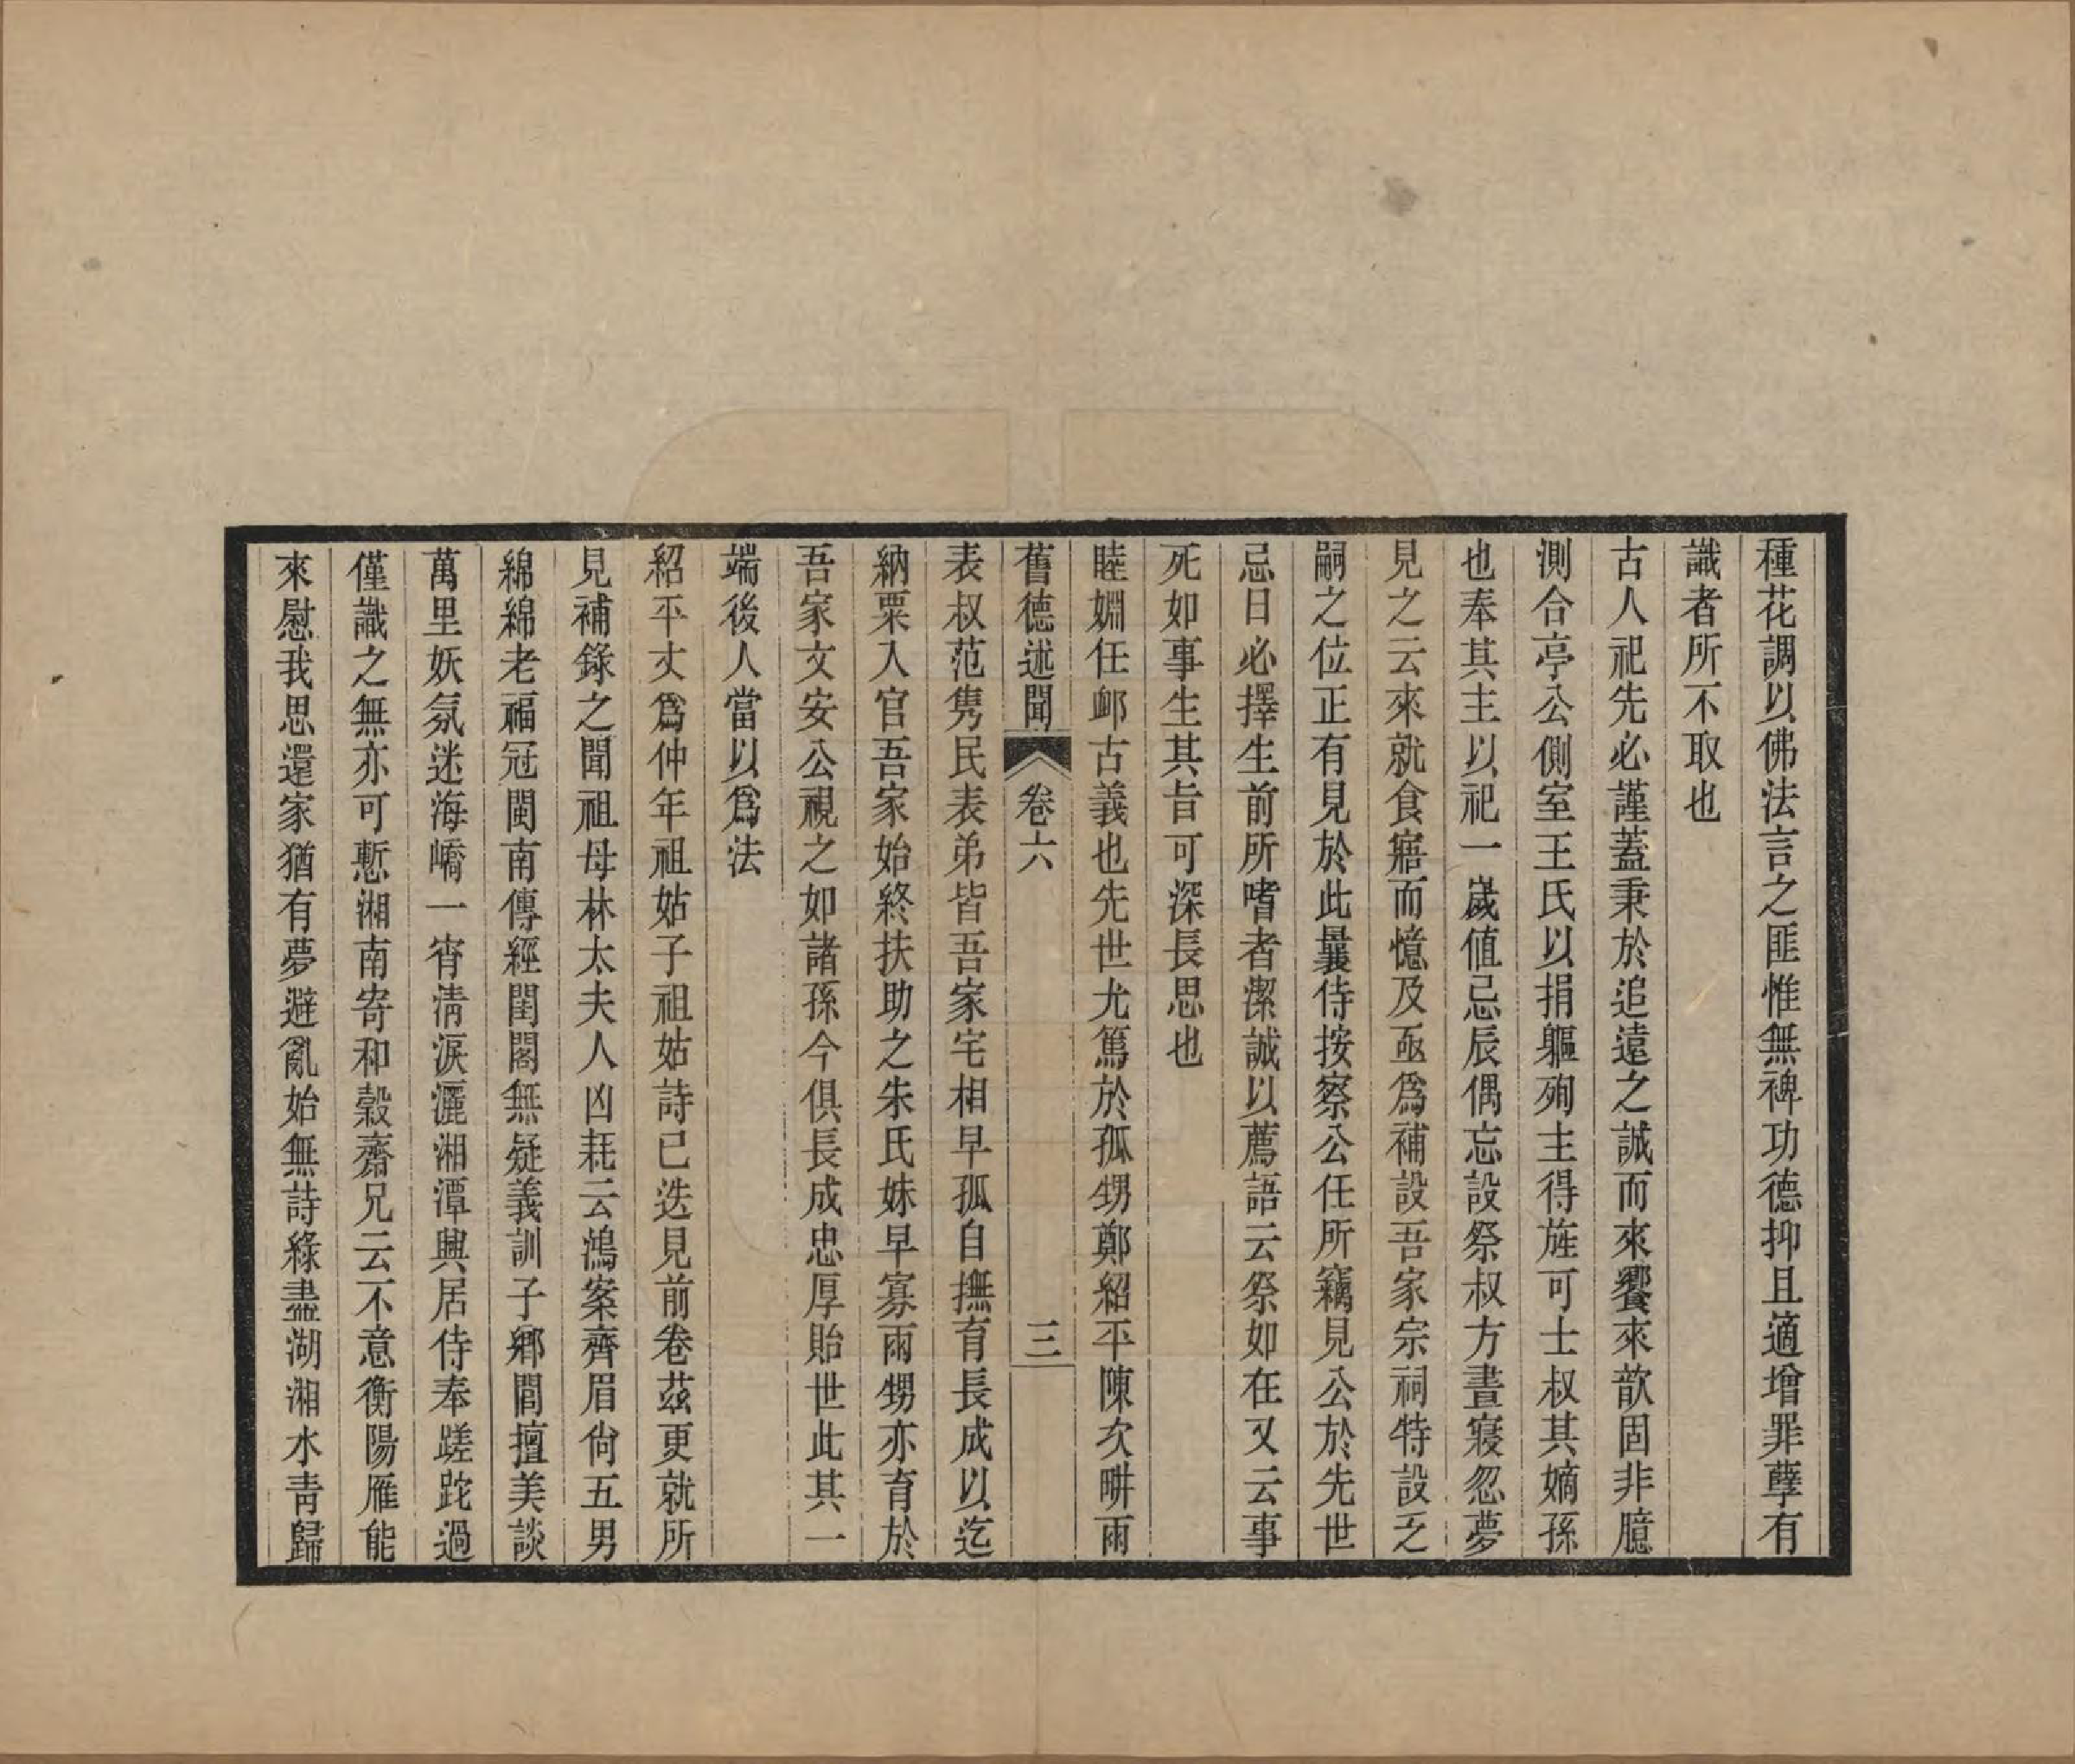 種花調以佛法言之匪惟無裨功德抑且適增罪孽有
識者所不取也
古人祀先必謹蓋秉於追遠之誠而來饗來歆固非臆
測合亭公側室王氏以捐軀殉主得旌可士叔其嫡孫
也奉其主以祀一歲值忌辰偶忘設祭叔方晝寢忽夢
見之云來就食寤而憶及亟爲補設吾家宗祠特設乏
嗣之位正有見於此曩侍按察公任所竊見公於先世
忌日必擇生前所嗜者潔誠以薦語云祭如在又云事
死如事生其旨可深長思也
睦婣任䘏古義也先世尤篤於孤甥鄭紹平陳次畊兩
舊德述聞 卷六 三
表叔范雋民表弟皆吾家宅相早孤自撫育長成以迄
納粟入官吾家始終扶助之朱氏妹早寡兩甥亦育於
吾家文安公視之如諸孫今俱長成忠厚貽世此其一
端後人當以爲法
紹平丈爲仲年祖姑子祖姑詩已迭見前卷茲更就所
見補錄之聞祖母林太夫人凶耗云鴻案齊眉尙五男
綿綿老福冠閩南傳經閨閣無疑義訓子鄉閭擅美談
萬里妖氛迷海嶠一宵淸淚灑湘潭興居侍奉蹉跎過
僅識之無亦可慙湘南寄和穀齋兄云不意衡陽雁能
來慰我思還家猶有夢避亂始無詩綠盡湖湘水靑歸